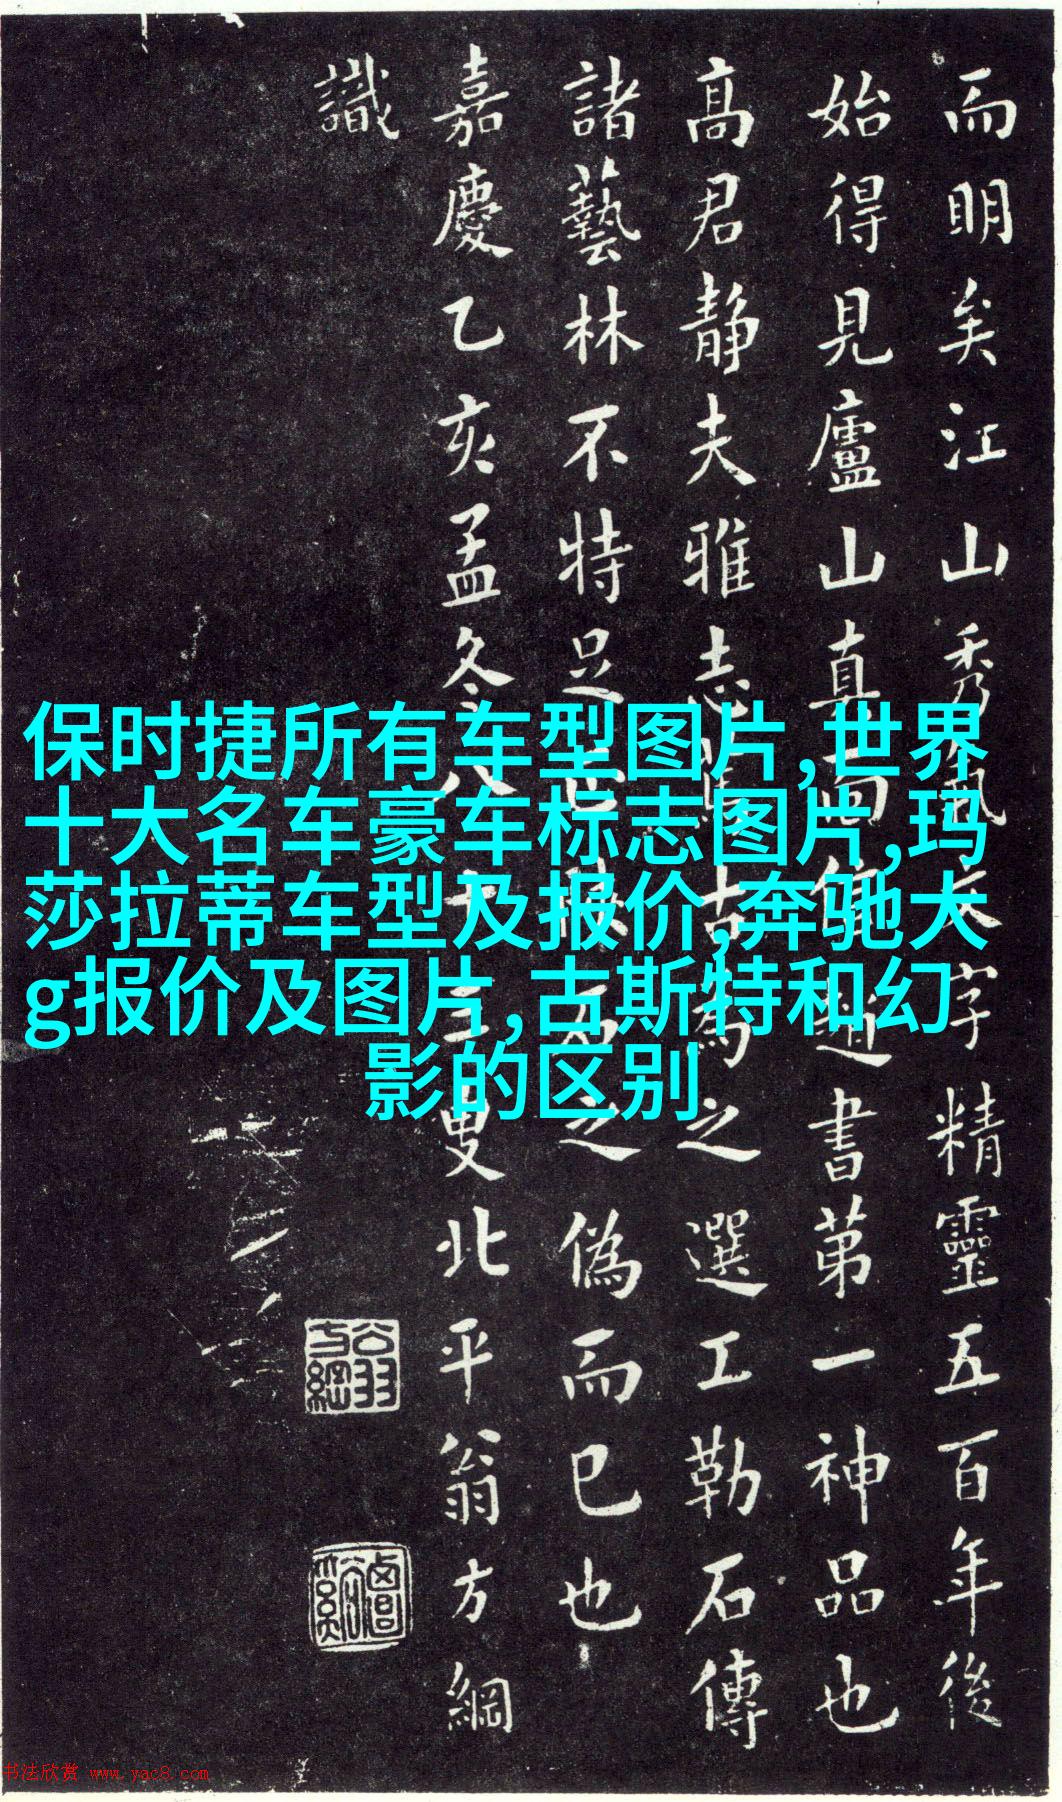 而明矣江山秀字精靈五百年後
始得見廬山真面書第一神品也
高君静夫雅志古為之選工勒石傳
諸藝林不特足之偽而已也
嘉慶乙亥孟冬八十三叟北平翁方綱
識
翁方綱
保时捷所有车型图片,世界
十大名车豪车标志图片,玛
莎拉蒂车型及报价,奔驰大
g报价及图片,古斯特和幻
影的区别
书法欣赏 www.yac8.com